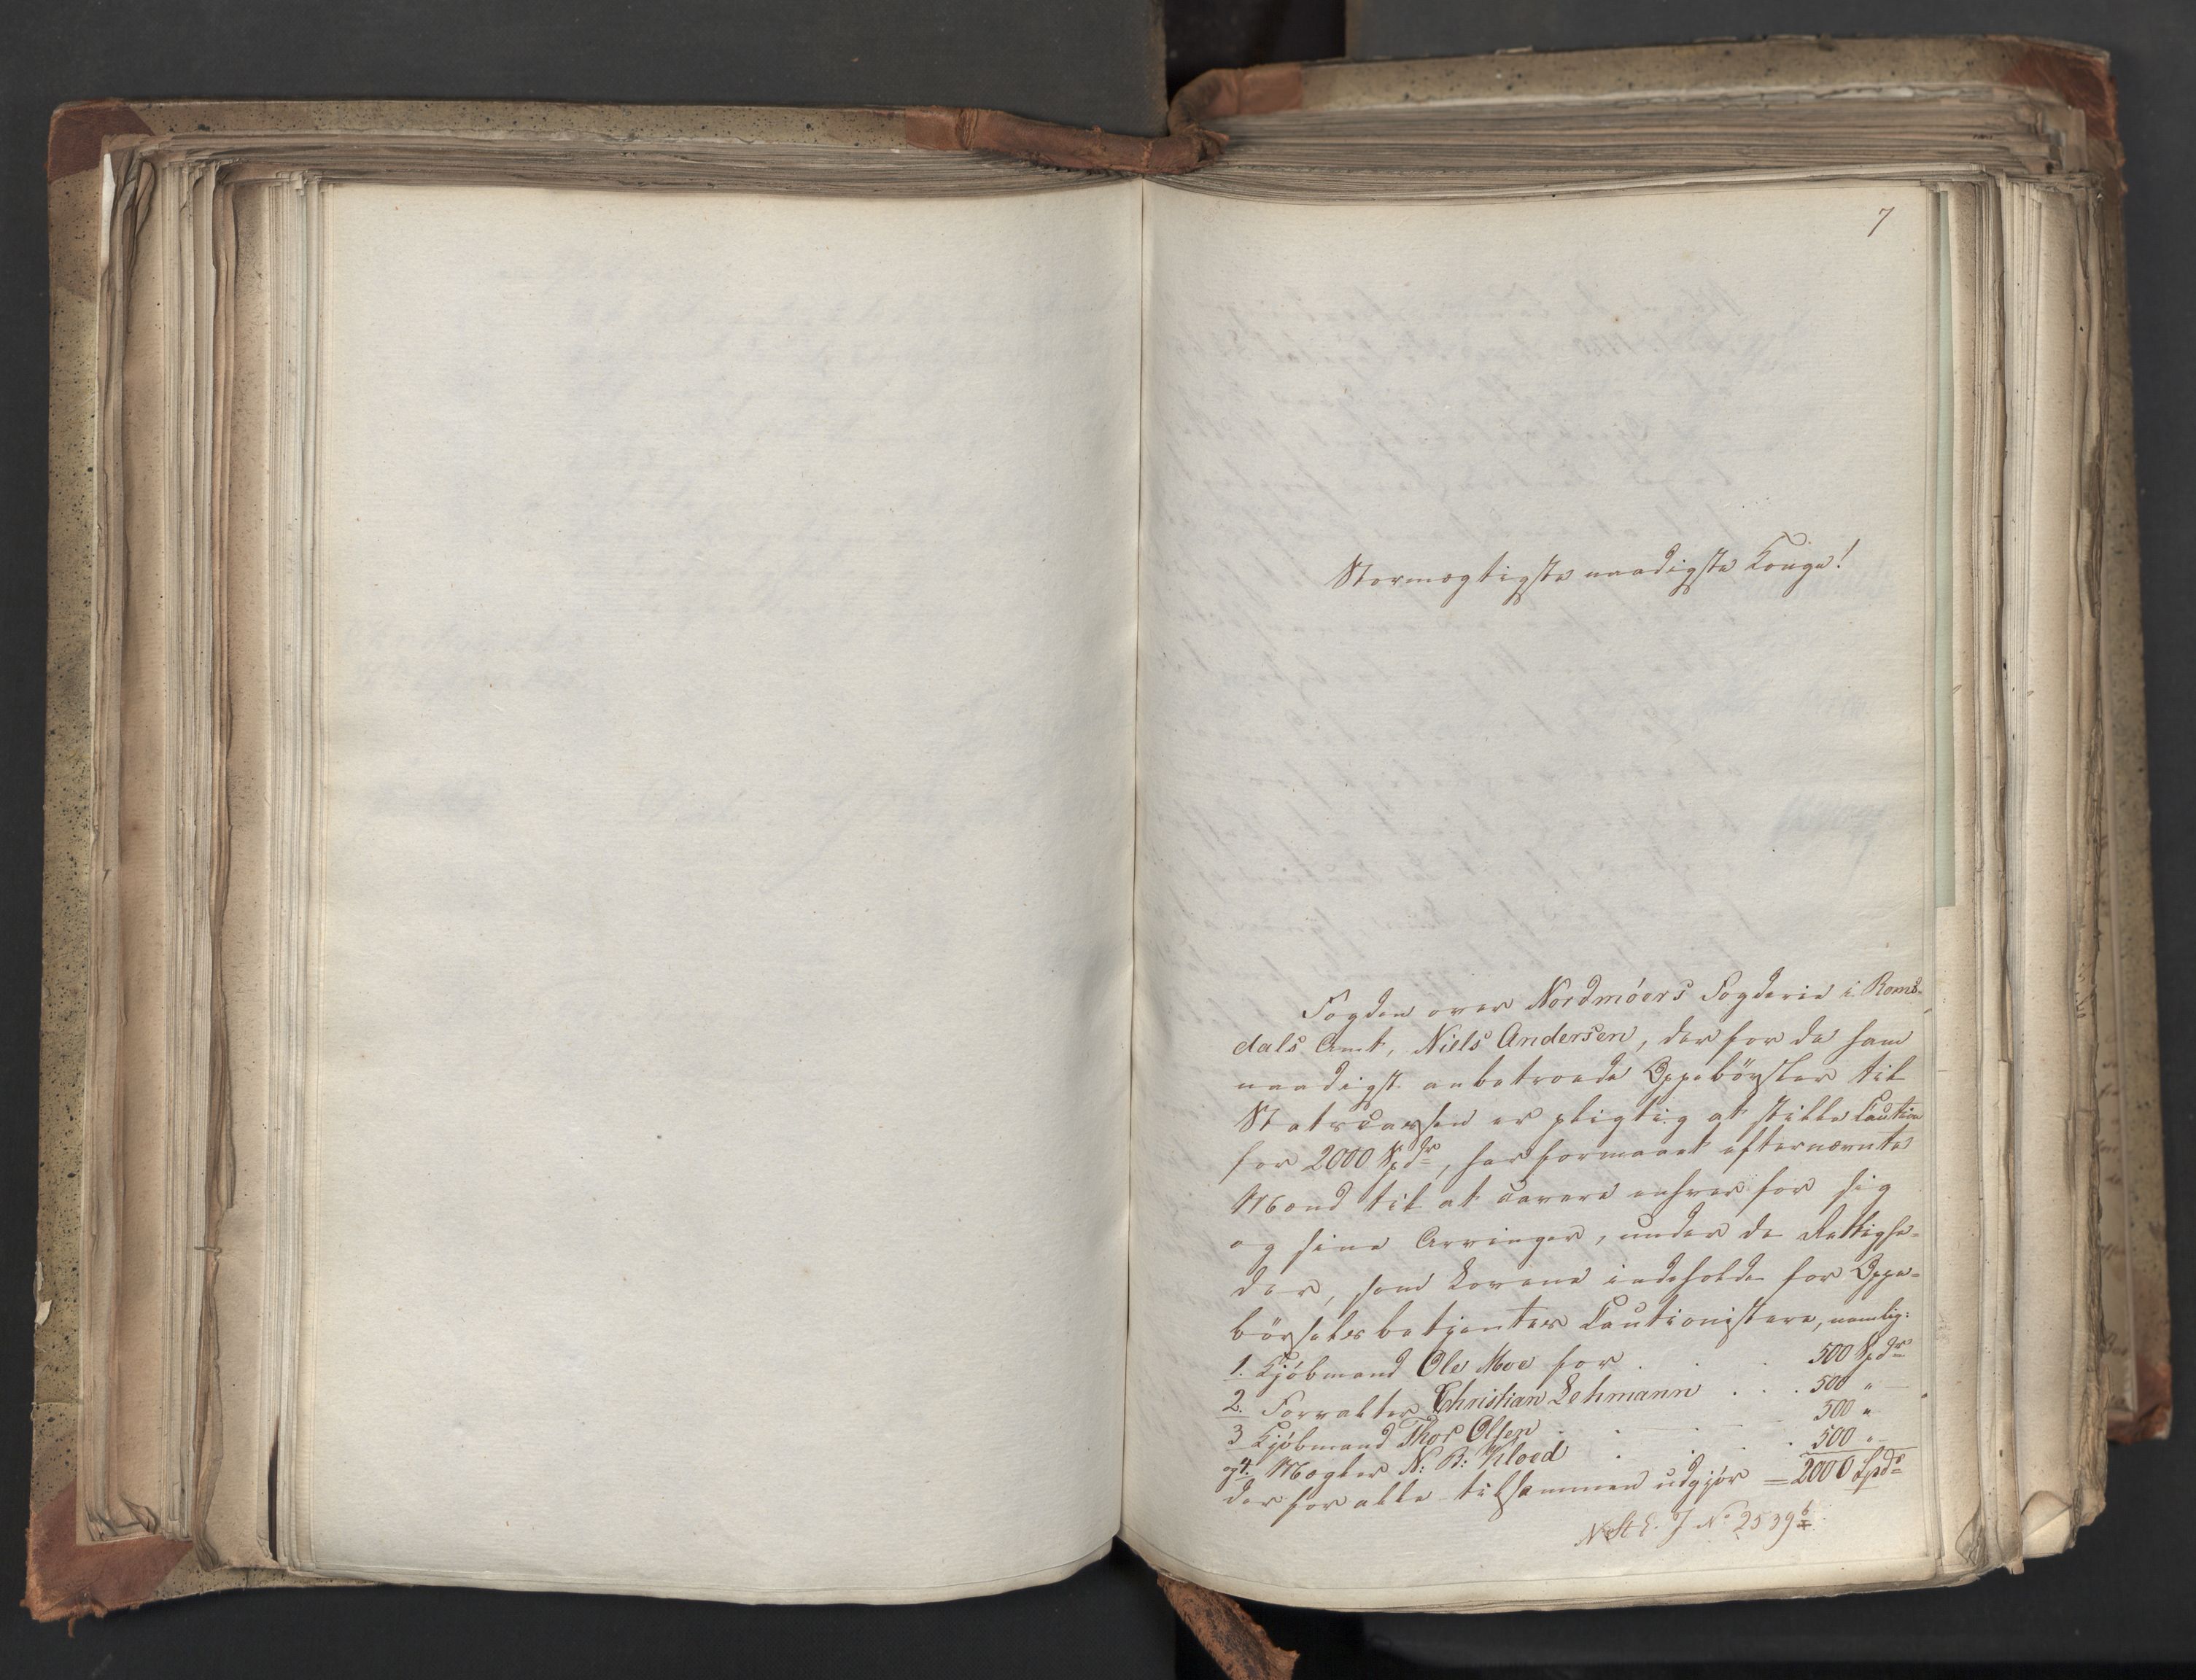 7
Stormægtigste naadigste Konge!
Fogden over Nordmöers Fogderie i Roms-
dals Amt, Niels Andersen, der for de ham
naadigst anbetroede Oppebörsler til
Statscassen er pligtig at stille Caution
for 2000 Spdr, har formaaet efternævnte
Mænd til at cavere enhver for sig
og sine Arvinger, under de Rettighe-
der, som Lovene indeholde for Oppe-
börselsbetjentes Cautionistere, nemlig:
1. Kjöbmand Ole Moe for . . . 500 Spdr
2. Forvalter Christian Lehmann . . . 500 "
3 Kjöbmand Thor Olsen . . . 500 "
og 4. Mægler N: B: Kloed . . . 500 "
der for alle tilsammen udgjör = 2000 Spdr
No 2539